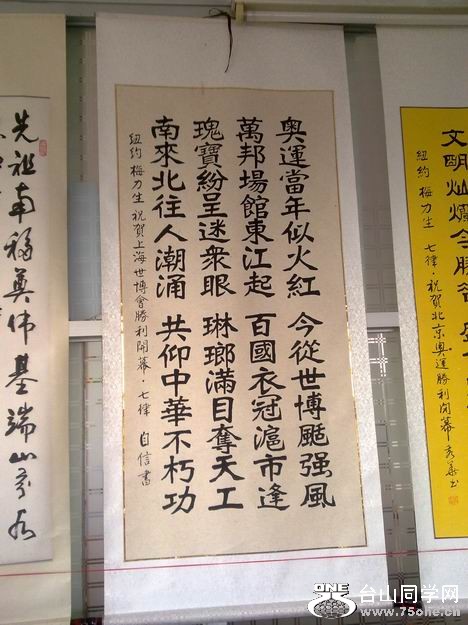 文明灿爛今勝
紐約 梅刀生 七律·祝賀北京奧運勝利開幕
奧運當年似火紅 今從世博颳强風
萬邦場館東江起 百國衣冠滬市逢
瑰寶紛呈迷衆眼 琳瑯滿目奪天工
南來北往人潮涌 共仰中華不朽功
紐約 梅刀生 祝賀上海世博會勝利開幕·七律 自信書
先祖南 奠伟基端山
ONE
台山同学网
www.75ohe.cn